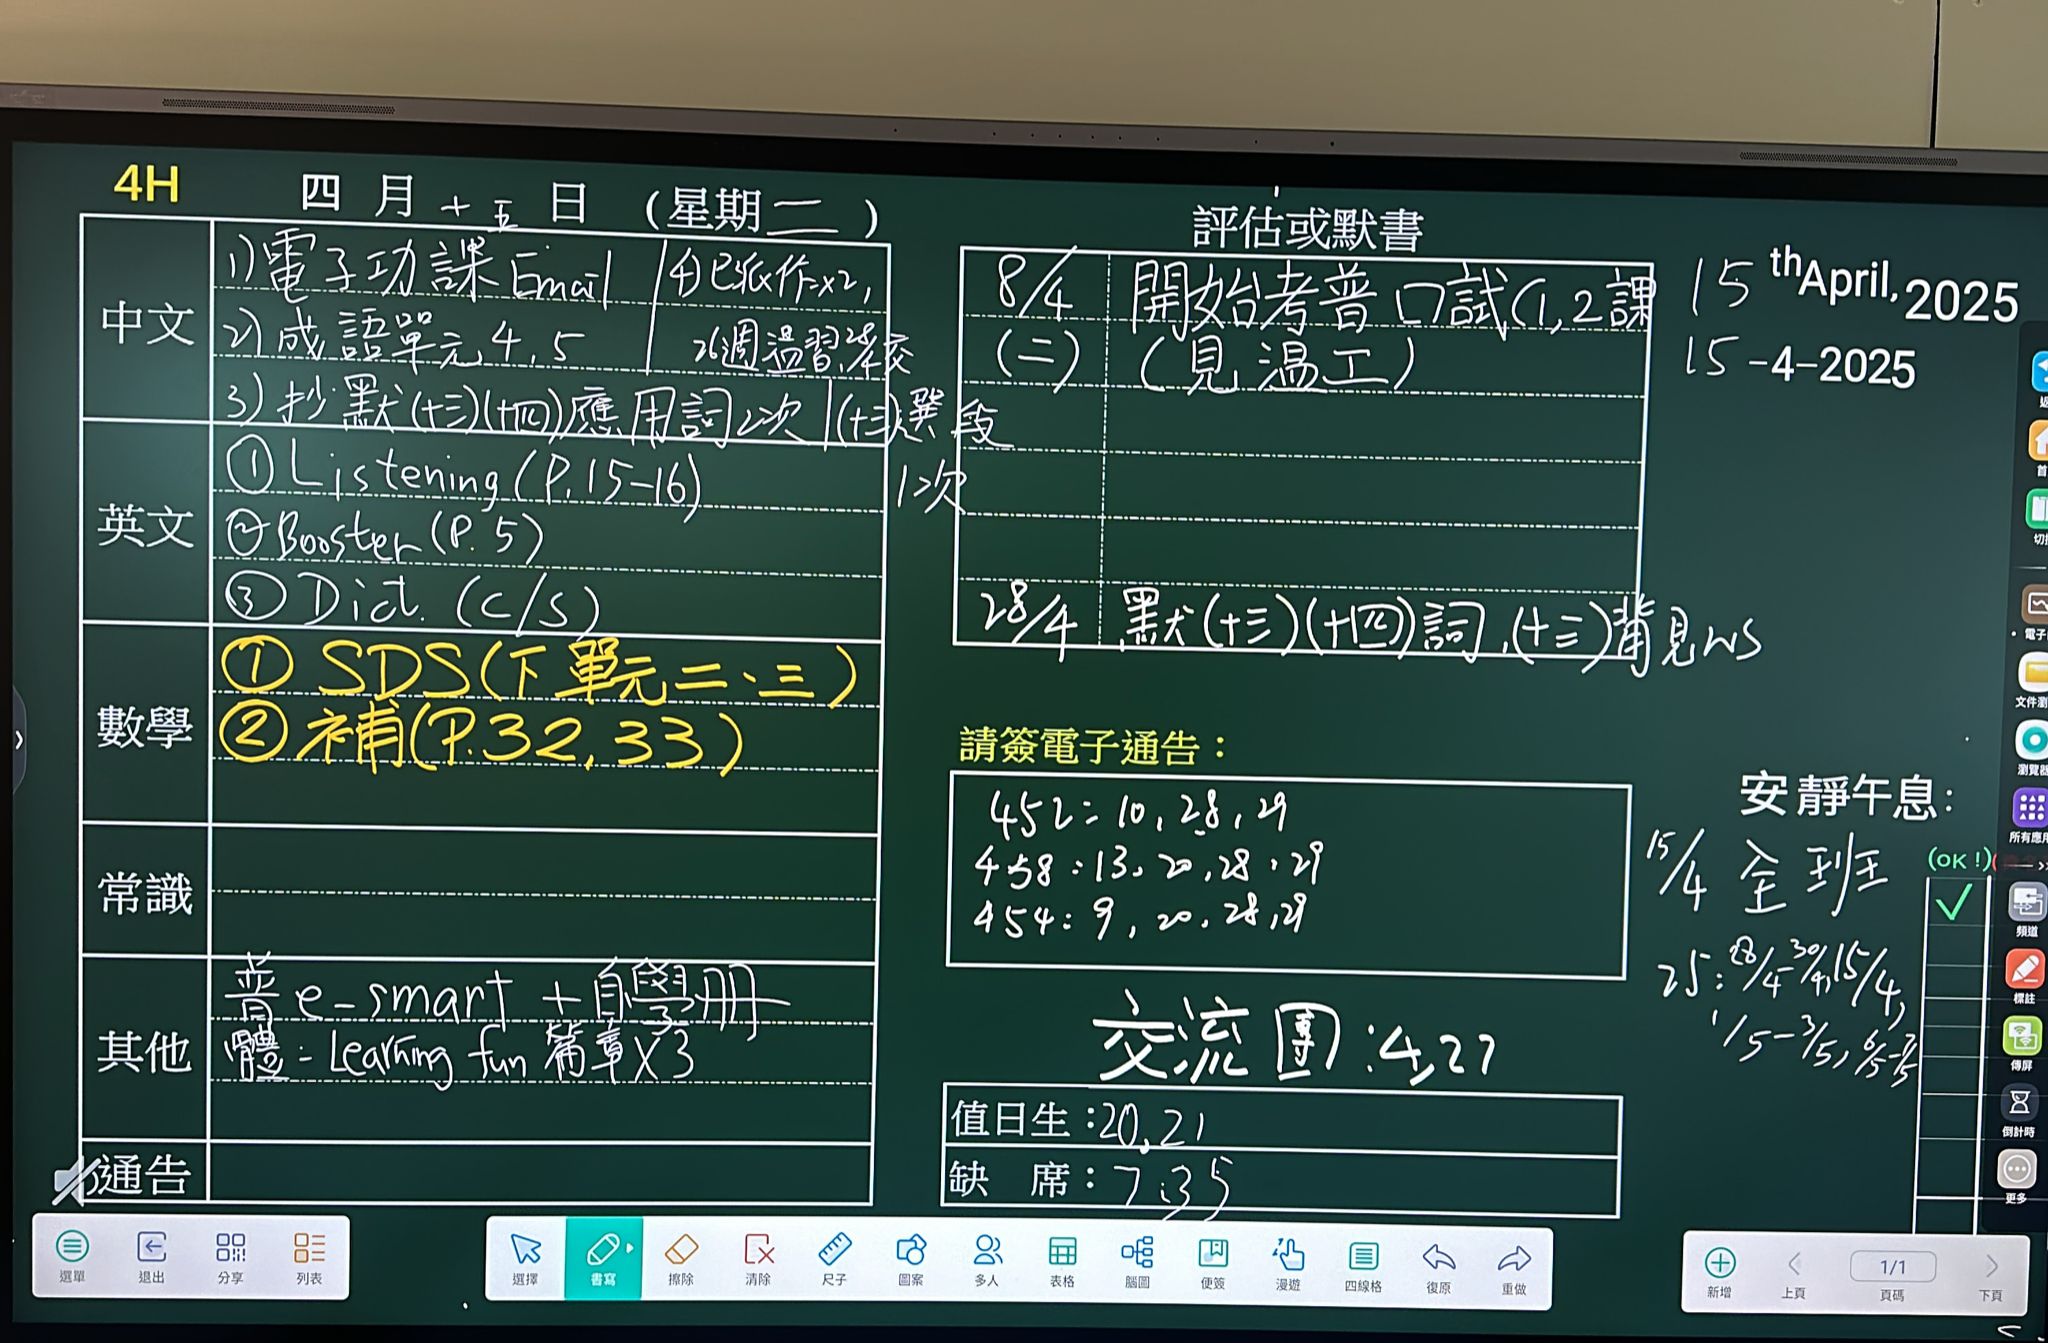 4H
四月十五日（星期二）
中文
1) 電子功課 Email
2) 成語單元 4, 5
3) 抄默(十三)(十四)應用詞2次 | (十三)選段
1次
4) 已派作x2,
26週溫習, 28/4交
英文
① Listening (P.15-16)
② Booster (P.5)
③ Dict. (C/S)
數學
① SDS(下單元二、三)
② 補(P.32, 33)
常識
其他
普 e-smart + 自學冊
體: Learning fun 篇章X3
通告
評估或默書
8/4 開始考普口試(1, 2課
(二) (見溫工)
28/4 默(十三)(十四)詞, (十三)背見WS
15th April, 2025
15-4-2025
請簽電子通告：
452: 10, 28, 29
458: 13, 20, 28, 29
454: 9, 20, 28, 29
交流團: 4, 27
值日生：20, 21
缺席：7, 35
安靜午息：
(OK!)
15/4 全班 ✓
25: 15/4,
1/5-3/5,
選單 退出 分享 列表
選擇 書寫 擦除 清除 尺子 圖案 多人 表格 腦圖 便簽 漫遊 四線格 復原 重做
新增 上頁 1/1 頁碼 下頁
首
切
電子
文件瀏
瀏覽器
所有應用
頻道
標註
傳屏
倒計時
更多